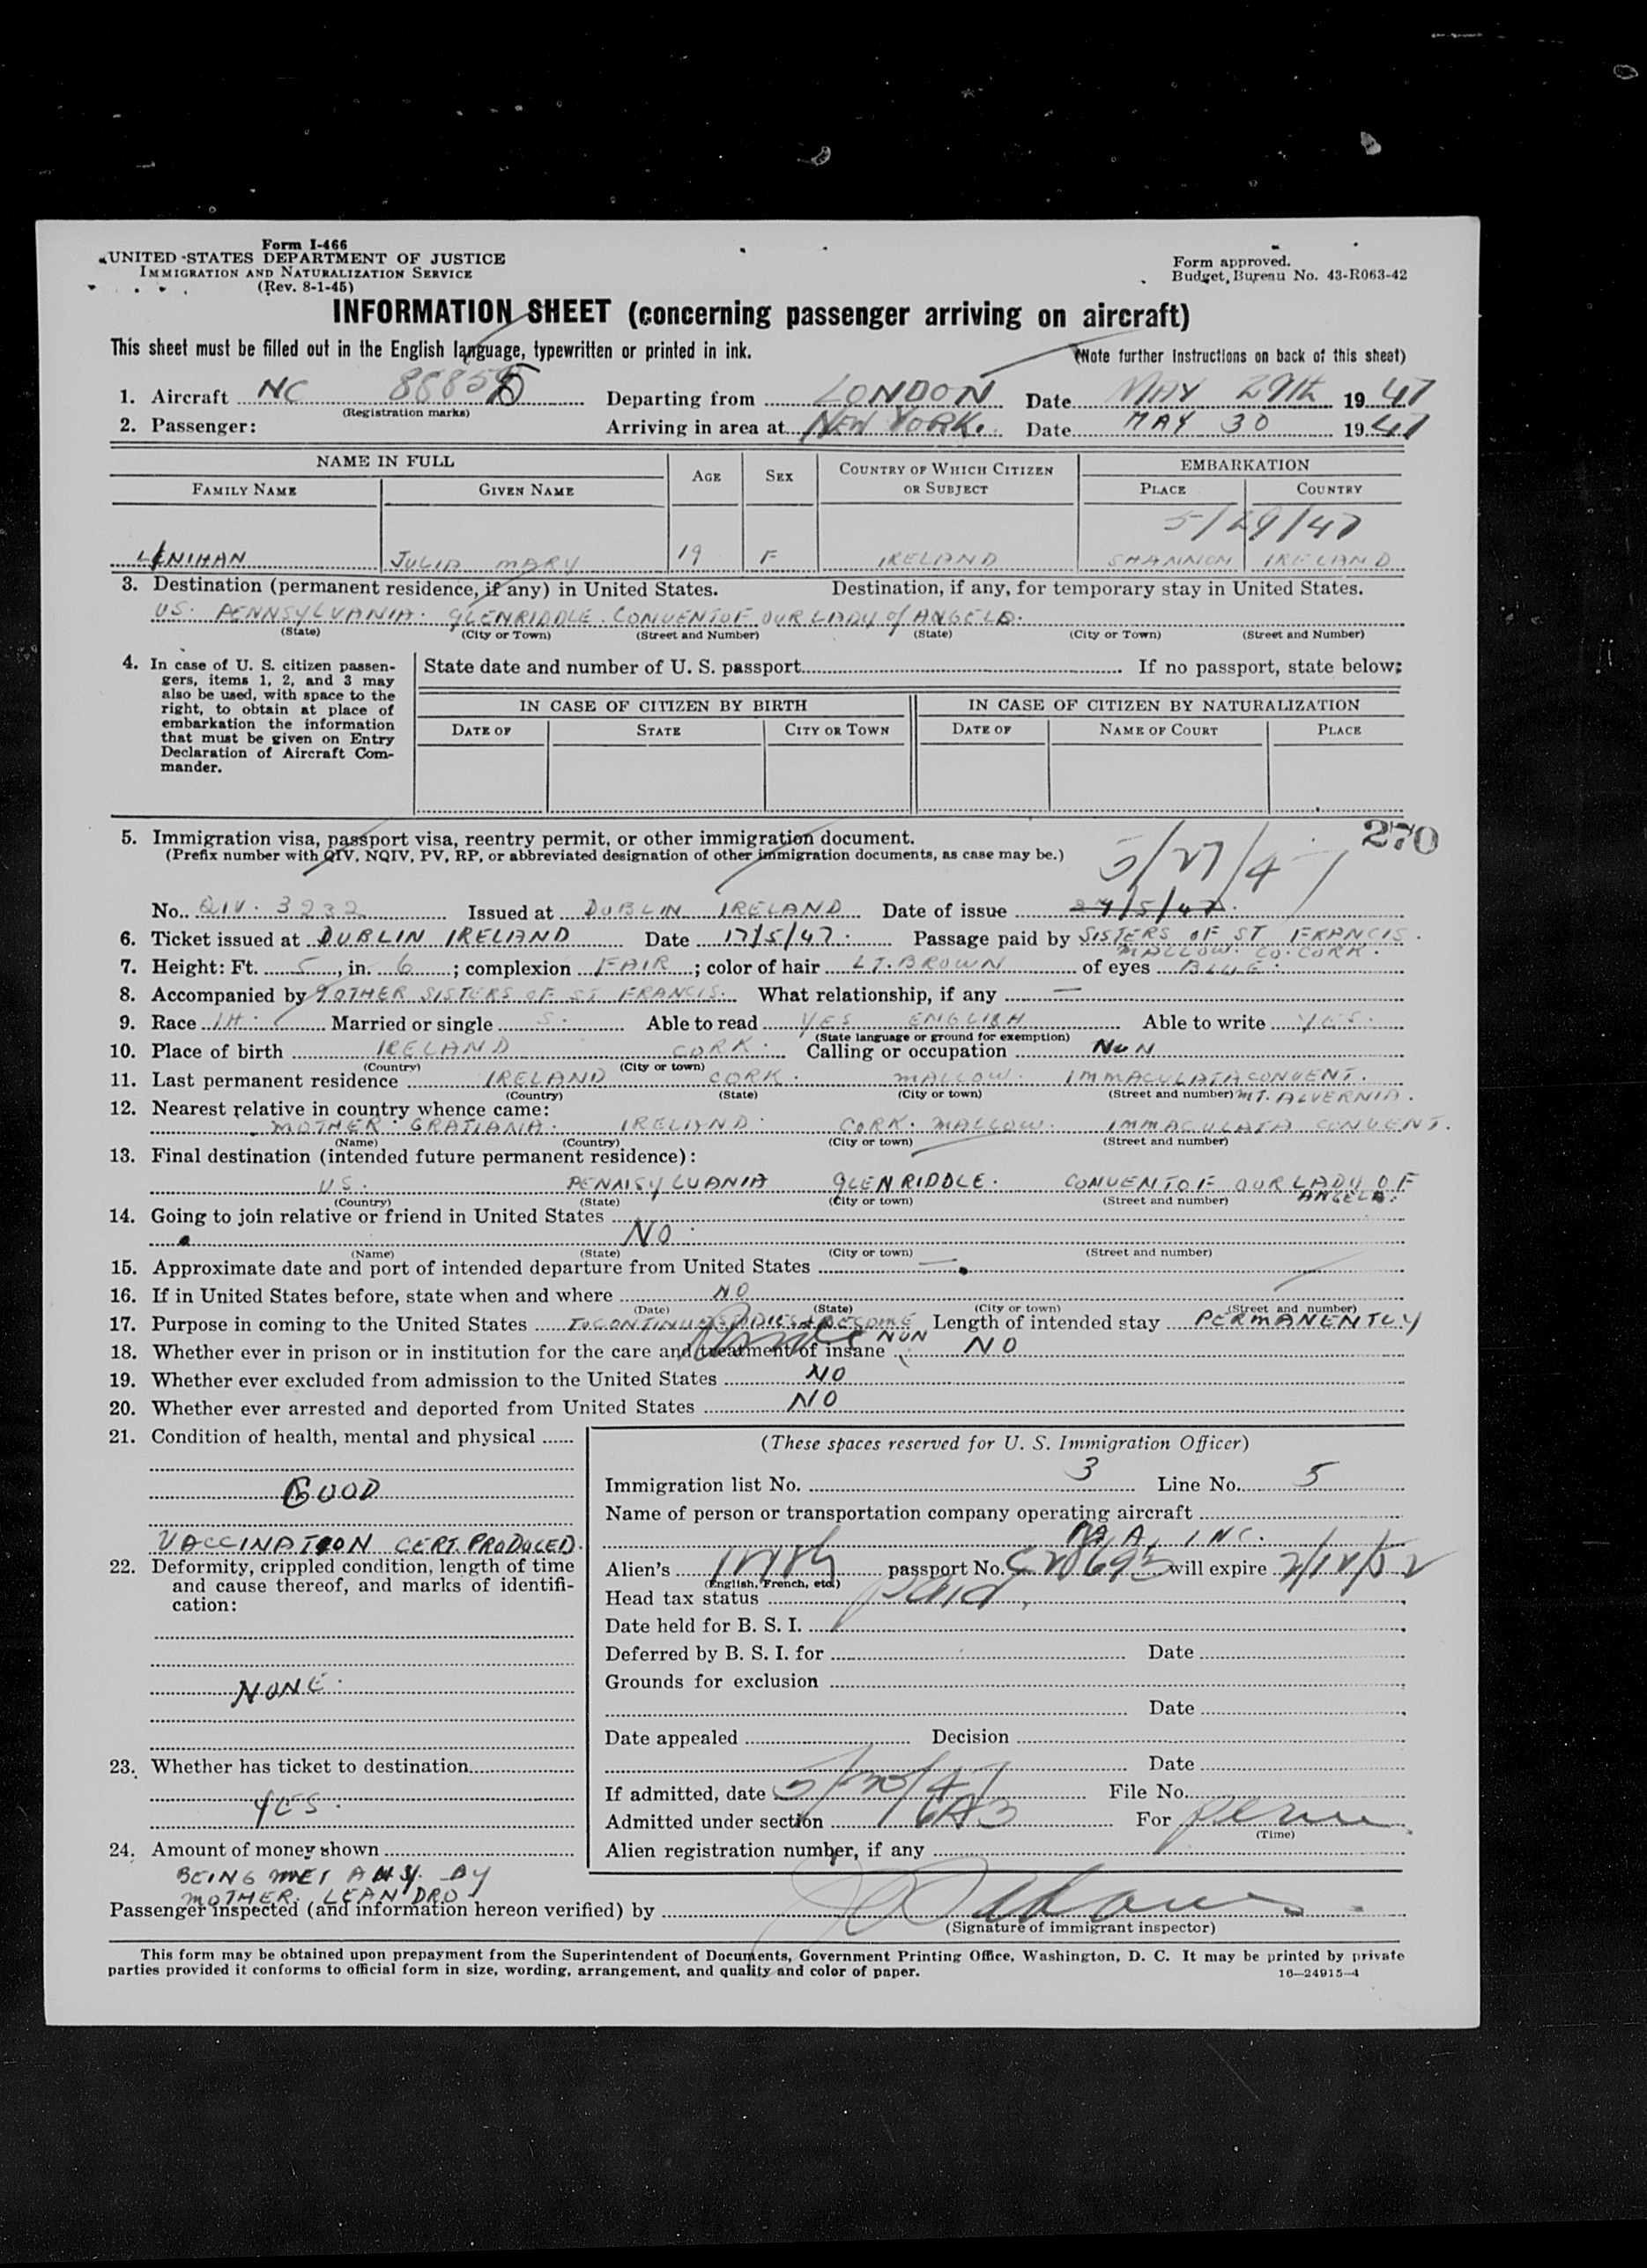 Form I-466
UNITED STATES DEPARTMENT OF JUSTICE
IMMIGRATION AND NATURALIZATION SERVICE
(Rev. 8-1-45)
Form approved.
Budget Bureau No. 43-R063-42
INFORMATION SHEET (concerning passenger arriving on aircraft)
This sheet must be filled out in the English language, typewritten or printed in ink.
(Note further instructions on back of this sheet)
1. Aircraft NC 88858 Departing from LONDON Date MAY 29th 1947
(Registration marks)
2. Passenger: Arriving in area at NEW YORK. Date MAY 30 1947
NAME IN FULL AGE SEX COUNTRY OF WHICH CITIZEN OR SUBJECT EMBARKATION
FAMILY NAME GIVEN NAME PLACE COUNTRY
5/29/47
LENIHAN JULIA MARY 19 F IRELAND SHANNON IRELAND
3. Destination (permanent residence, if any) in United States. Destination, if any, for temporary stay in United States.
US. PENNSYLVANIA. GLENRIDDLE. CONVENT OF OUR LADY of ANGELS.
(State) (City or Town) (Street and Number) (State) (City or Town) (Street and Number)
4. In case of U. S. citizen passen-
gers, items 1, 2, and 3 may
also be used, with space to the
right, to obtain at place of
embarkation the information
that must be given on Entry
Declaration of Aircraft Com-
mander.
State date and number of U. S. passport If no passport, state below:
IN CASE OF CITIZEN BY BIRTH IN CASE OF CITIZEN BY NATURALIZATION
DATE OF STATE CITY OR TOWN DATE OF NAME OF COURT PLACE
5. Immigration visa, passport visa, reentry permit, or other immigration document.
270
(Prefix number with QIV, NQIV, PV, RP, or abbreviated designation of other immigration documents, as case may be.)
5/27/47
No. QIV. 3232 Issued at DUBLIN IRELAND Date of issue 27/5/47.
6. Ticket issued at DUBLIN IRELAND Date 17/5/47. Passage paid by SISTERS OF ST FRANCIS.
MALLOW. CO. CORK.
7. Height: Ft. 5, in. 6; complexion FAIR; color of hair LT. BROWN of eyes BLUE.
8. Accompanied by 9 OTHER SISTERS OF ST FRANCIS. What relationship, if any —
9. Race IH. Married or single S. Able to read YES ENGLISH Able to write YES.
(State language or ground for exemption)
10. Place of birth IRELAND CORK. Calling or occupation NUN
(Country) (City or town)
11. Last permanent residence IRELAND CORK. MALLOW. IMMACULATA CONVENT.
(Country) (State) (City or town) (Street and number) MT. ALVERNIA.
12. Nearest relative in country whence came:
MOTHER GRATIANA. IRELAND. CORK. MALLOW. IMMACULATA CONVENT.
(Name) (Country) (City or town) (Street and number)
13. Final destination (intended future permanent residence):
U.S. PENNSYLVANIA GLENRIDDLE. CONVENT OF OUR LADY OF
ANGELS.
(Country) (State) (City or town) (Street and number)
14. Going to join relative or friend in United States
NO
(Name) (State) (City or town) (Street and number)
15. Approximate date and port of intended departure from United States —
16. If in United States before, state when and where NO
(Date) (State) (City or town) (Street and number)
17. Purpose in coming to the United States TO CONTINUE STUDIES & BECOME Length of intended stay PERMANENTLY
NUN
18. Whether ever in prison or in institution for the care and treatment of insane NO
19. Whether ever excluded from admission to the United States NO
20. Whether ever arrested and deported from United States NO
21. Condition of health, mental and physical
GOOD
VACCINATION CERT PRODUCED.
22. Deformity, crippled condition, length of time
and cause thereof, and marks of identifi-
cation:
NONE.
23. Whether has ticket to destination
YES.
24. Amount of money shown
BEING MET BY
MOTHER. LEANDRO
(These spaces reserved for U. S. Immigration Officer)
Immigration list No. 3 Line No. 5
Name of person or transportation company operating aircraft
INC.
Alien's Irish passport No. will expire
(English, French, etc.)
Head tax status paid
Date held for B. S. I.
Deferred by B. S. I. for Date
Grounds for exclusion
Date
Date appealed Decision
Date
If admitted, date 5/30/47 File No.
Admitted under section 6A3 For perm
(Time)
Alien registration number, if any
Passenger inspected (and information hereon verified) by
(Signature of immigrant inspector)
This form may be obtained upon prepayment from the Superintendent of Documents, Government Printing Office, Washington, D. C. It may be printed by private
parties provided it conforms to official form in size, wording, arrangement, and quality and color of paper.
16—24915-4